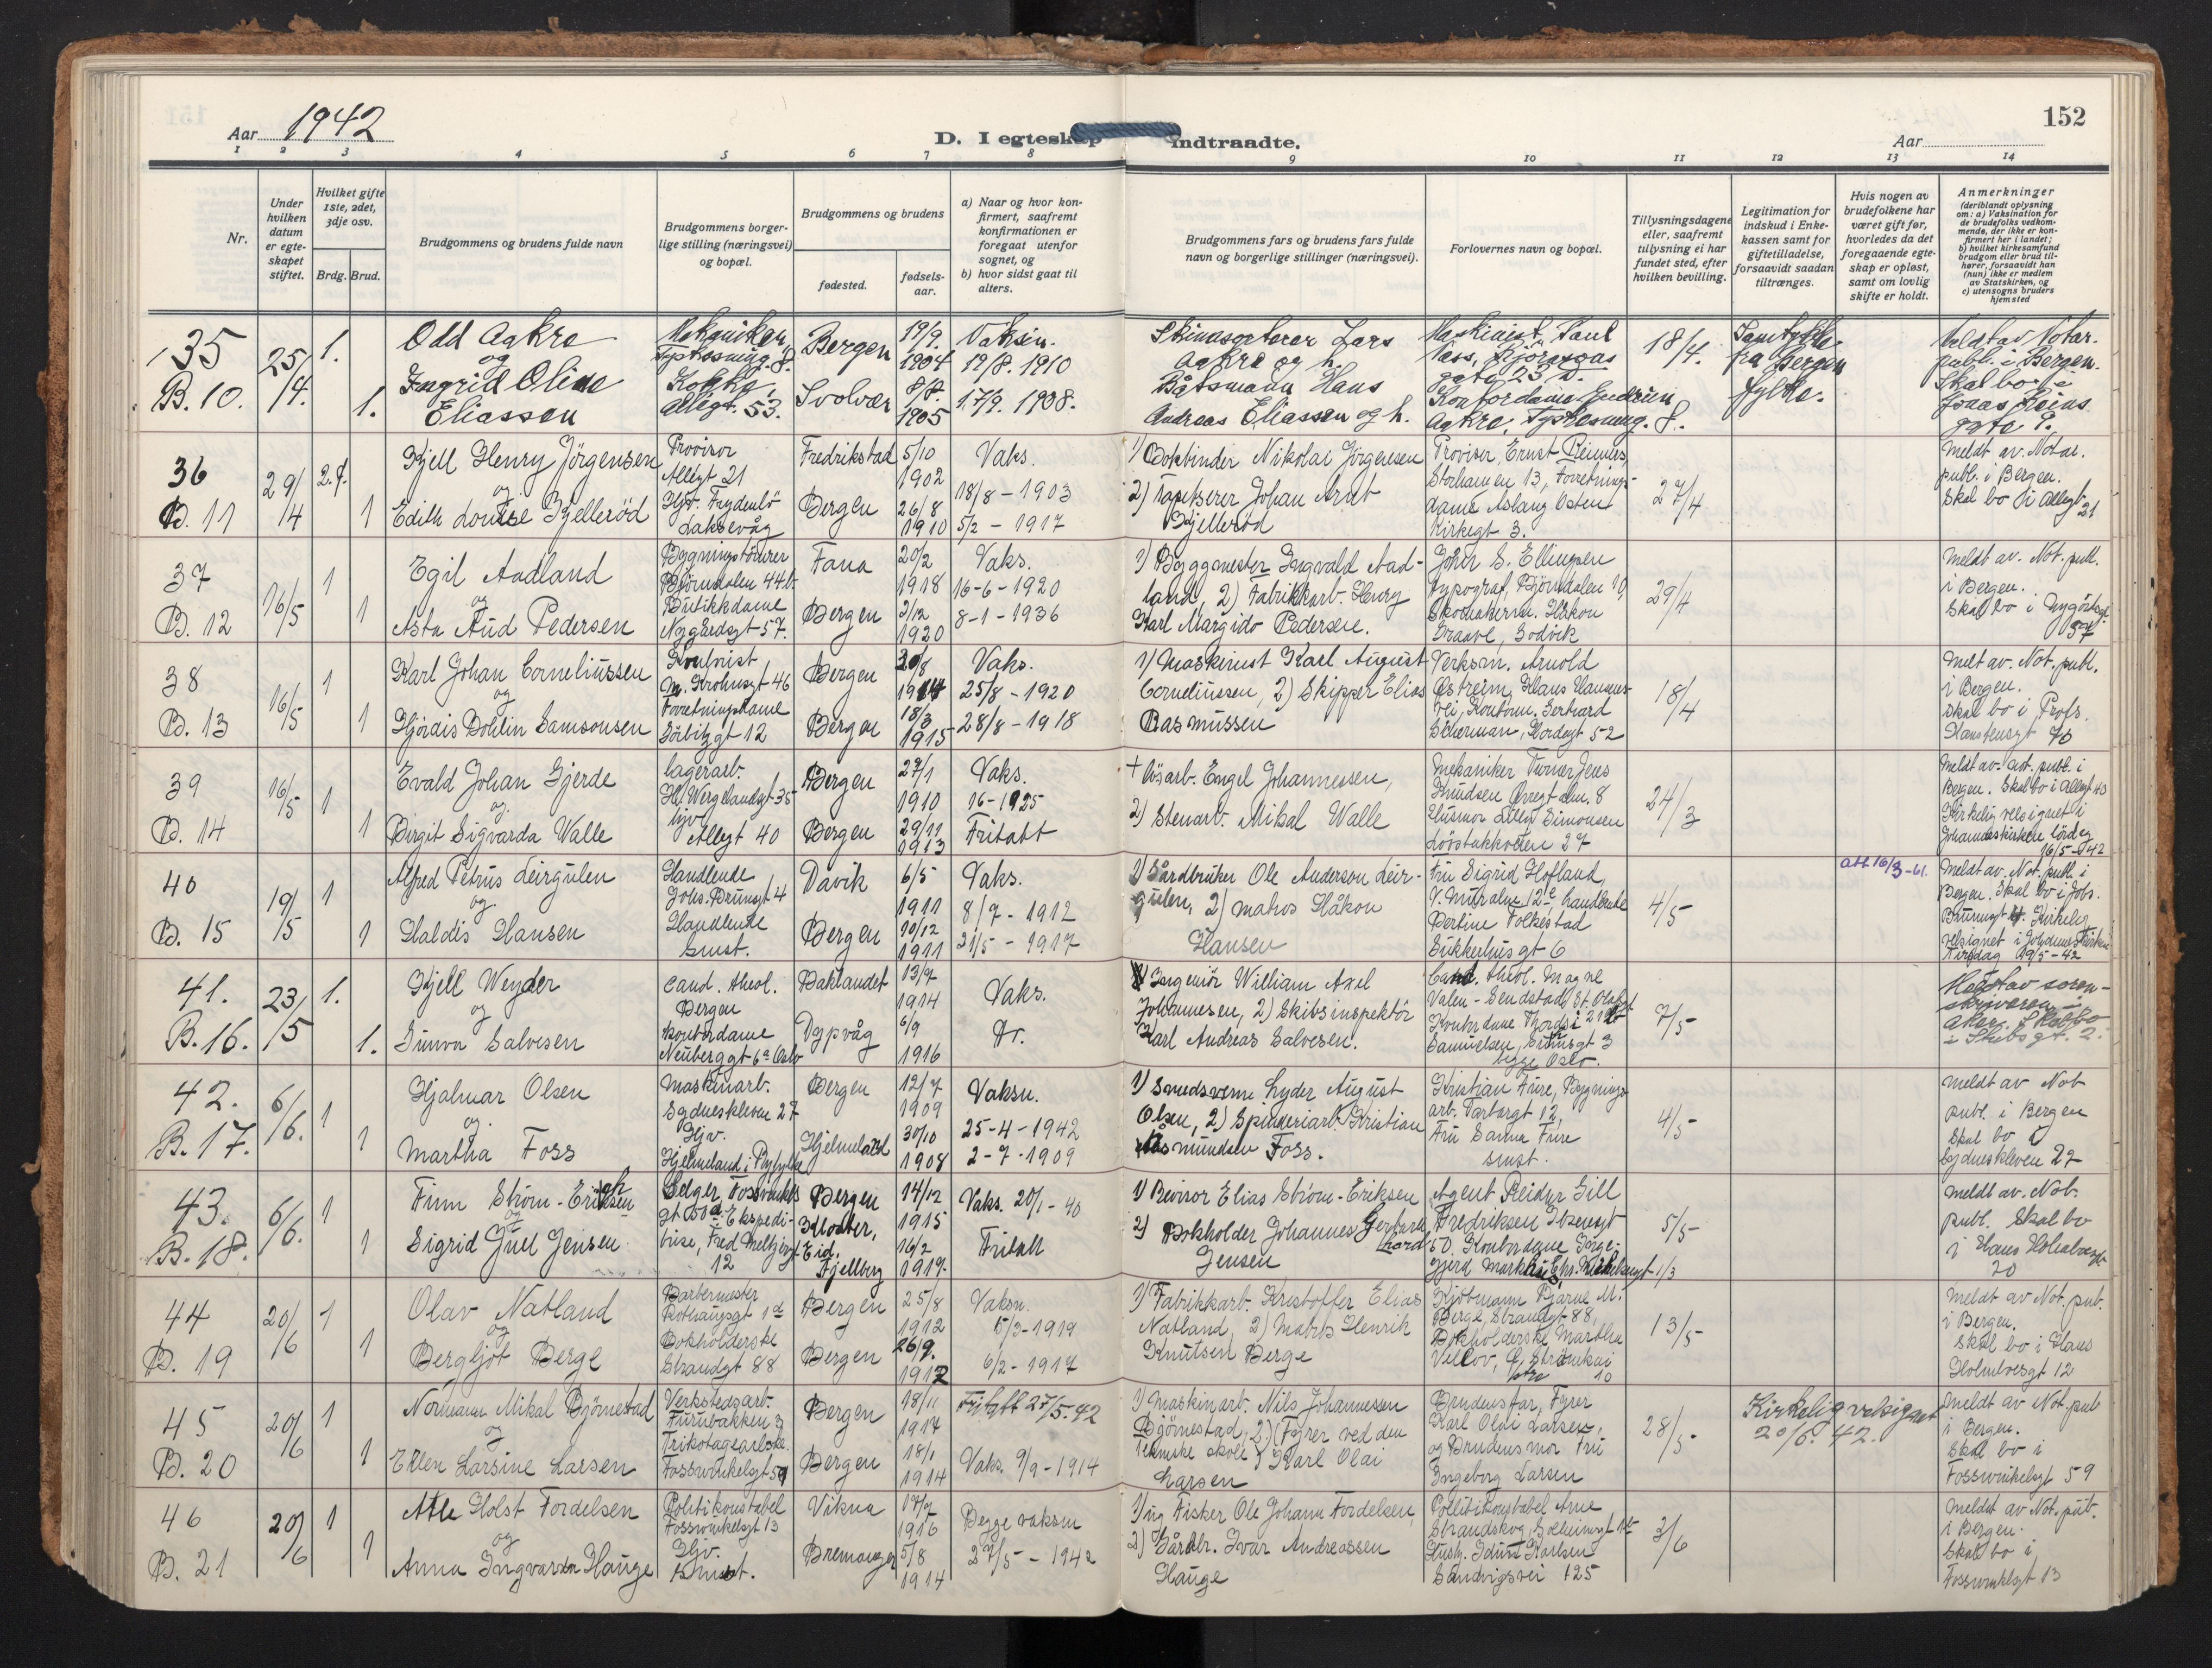 Aar 1942
D. I egteskap indtraadte.
Aar
152
1 2 3 4 5 6 7 8 9 10 11 12 13 14
Nr.
Under hvilken datum er egteskapet stiftet.
Hvilket gifte 1ste, 2det, 3dje osv.
Brdg. Brud.
Brudgommens og brudens fulde navn
Brudgommens borgerlige stilling (næringsvei) og bopæl.
Brudgommens og brudens
fødested.
fødselsaar.
a) Naar og hvor konfirmert, saafremt konfirmationen er foregaat utenfor sognet, og
b) hvor sidst gaat til alters.
Brudgommens fars og brudens fars fulde navn og borgerlige stillinger (næringsvei).
Forlovernes navn og bopæl.
Tillysningsdagene eller, saafremt tillysning ei har fundet sted, efter hvilken bevilling.
Legitimation for indskud i Enkekassen samt for giftetilladelse, forsaavidt saadan tiltrænges.
Hvis nogen av brudefolkene har været gift før, hvorledes da det foregaaende egteskap er opløst, samt om lovlig skifte er holdt.
Anmerkninger (deriblandt oplysning om: a) Vaksination for de brudefolks vedkommende, der ikke er konfirmert her i landet; b) hvilket kirkesamfund brudgom eller brud tilhører, forsaavidt han (hun) ikke er medlem av Statskirken, og c) utensogns bruders hjemsted
35
B. 10.
25/4.
1.
1.
Odd Aakre
og
Ingrid Oline
Eliassen
Mekaniker,
Kokke,
Allégt. 53.
Bergen
Svolvær
19/9. 1904
8/8. 1905
Vaksin.
19/8. 1910
17/9. 1908.
Lars
Aakre og h.
Båtsmann Hans
Andreas Eliassen og h.
gate 23
Aakre, 8.
18/4.
Samtykke
fra Bergen
fylke.
Meldt av Notar.
publ. i Bergen.
Skal bo i
Jonas Reins
gate 9.
36
B. 11
29/4
2. g.
1
Kjell Henry Jörgensen
og
Edith Louise Gjelleröd
Provisor
Allegt 21
Hjv. Frydenlö
Laksevåg
Fredrikstad
Bergen
5/10 1902
26/8 1910
Vaks.
18/8 - 1903
5/2 - 1917
1) Bokbinder Nikolai Jörgensen
2) Tapetserer Johan Arnt
Gjelleröd
Provisor Ernst Reimers,
Storhaugen 13, Forretnings-
dame Aslaug Osten
Kirkegt 3.
27/4
Meldt av. Notar.
publ. i Bergen.
Skal bo i Allegt 21
37
B. 12
16/5
1
1
Egil Aadland
og
Asta Aud Pedersen
Björndalen 44 b.
Butikkdame
Nygårdsgt 57.
Fana
Bergen
20/2 1918
2/12 1920
Vaks.
16-6-1920
8-1-1936
1) Byggmester Ingvald Aad-
land, 2) Fabrikkarb. Henry
Karl Margido Pedersen.
Johan S. Ellingsen
typograf, Björndalen 10
Skomakerm. Håkon
29/4
Meldt av. Not. publ.
i Bergen.
Skal bo i Nygårdsgt.
57
38
B. 13
16/5
1
1
Karl Johan Corneliussen
og
Hjördis Bohlin Samsonsen
Kontorist
M. Krohnsgt 46
Forretningsdame
gt 12
Bergen
Bergen
20/8 1914
18/3 1915
Vaks.
25/8 - 1920
28/8 - 1918
1) Maskinist Karl August
Corneliussen, 2) Skipper Elias
Rasmussen
Verksm. Arnold
Østreim, Klaus Hansens-
vei, Kontorm. Gerhard
Hordagt 52
18/4
Meldt av. Not. publ.
i Bergen.
Skal bo i Profs.
Hansteensgt 70
39
B. 14
16/5
1
1
Evald Johan Gjerde
og.
Birgit Sigvarda Walle
Lagerarb.
H. Wergelandsgt 35
hjv.
Allegt 40
Bergen
Bergen
27/1 1910
29/11 1913
Vaks.
16-1925
Fritatt
+ lösarb. Engel Johannessen,
2) Stenarb. Mikal Walle
Mekaniker
Knudsen Øvregt alm. 8
Husmor Lilly Simonsen
Lövstakkveien 27
24/3
Meldt av. not. publ. i
Bergen. Skal bo i Allegt 40
Kirkelig velsignet i
Johanneskirken lördag
16/5-1942
40
B. 15
19/5
1
1
Alfred Petrus Leirgulen
og
Haldis Hansen
Handlende
Johs. Brunsgt 4
Handlende
smst.
Davik
Bergen
6/5 1911
10/12 1911
Vaks.
8/7 - 1912
21/5 - 1917
1) Gårdbruker Ole Anderson Leir-
gulen, 2) Matros Håkon
Hansen
Fru Sigrid Hofland,
V. Muralm 12 c, handlende
Bertine Folkestad
Sukkerhusgt 6
4/5
att 16/3-61.
Meldt av. Not. publ. i
Bergen. Skal bo i Johs.
Brunsgt 4. Kirkelig
velsignet i Johanneskirken
Tirsdag 19/5-42
41.
B. 16.
23/5
1.
1.
Kjell Weyder
og
Gunvor Salvesen
Cand. theol.
Bergen
Kontordame
Neuberggt 6a Oslo
Baklandet
Dypvåg
13/7 1914
6/9 1916
Vaks.
Do.
1) Ingeniör William Axel
Johannesen, 2) Skibsinspektör
Karl Andreas Salvesen.
Cand. theol. Magne
Valen-Sendstad, St. Olafsgt
Kontordame Thordis
Samuelsen,
begge Oslo.
7/5
Meldt av soren-
skriveren i
Aker. Skal bo
i Stubsgt. 2.
42.
B. 17.
6/6.
1
1
Hjalmar Olsen
og.
Martha Foss
Maskinarb.
Sydneskleven 27
Hjv.
Hjelmeland i Ryfylke
Bergen
Hjelmeland
12/7 1909
30/10 1908
Vaksn.
25-4-1942
2-7-1909
1) Smedsvenn Lyder August
Olsen, 2) Spinneriarb. Kristian
Rasmundsen Foss.
Kristian Fure, Bygnings-
arb. Torborgt 12,
Fru Sanna Fure
smst.
4/5
Meldt av Not
publ. i Bergen
Skal bo i
Sydneskleven 27
43.
B. 18.
6/6.
1
1
Finn Strøm-Eriksen
og
Sigrid Juel Jensen
Selger, Fosswinkels
gt 50 a. Ekspedi-
trise, Fred Meltzersgt
12
Bergen
Eid,
Fjellberg
14/12 1915
16/2 1917.
Vaks. 20/1-40
Fritatt
1) Revisor Elias Strøm-Eriksen
2) Bokholder Johannes Gerhard
Jensen
Agent Reidar Gill
Fredriksen Ibsensgt
50. Kontordame Inge-
gjerd Markhus, Chr. Michelsensgt 1/3
5/5
Meldt av. Not.
publ. Skal bo
i Hans Holmboesgt
20
44
B. 19
20/6
1
1
Olav Natland
og
Bergljot Berge
Barbermester
Rothaugsgt 1 d
Bokholderske
Strandgt 88
Bergen
Bergen
25/8 1912
26/9. 1912
Vaksn.
5/3-1919
6/2-1917
1) Fabrikkarb. Kristoffer Elias
Natland, 2) Matros Henrik
Knutsen Berge
Kjøtmann Bjarne M.
Berge, Strandgt 88,
Bokholderske Martha
Strömkai
10
13/5
Meldt av Not. pub.
i Bergen.
Skal bo i Hans
Holmboesgt 12
45
B. 20
20/6
1
1
Normann Mikal Björnestad
og
Ellen Larsine Larsen
Verkstedsarb.
Furubakken 3
Trikotagearbske.
Fosswinkelsgt 59
Bergen
Bergen
18/11 1917
18/1 1914
Fritatt 27/5.42
Vaks. 9/9-1914
1) Maskinarb. Nils Johannesen
Björnestad, 2) (Fyrer ved den
Tekniske skole) Karl Olai
Larsen
Brudens far, Fyrer
Karl Olai Larsen,
og Brudens mor Fru
Ingeborg Larsen
28/5
Kirkelig velsignet
20/6. 42.
Meldt av Not. pub
i Bergen.
Skal bo i
Fosswinkelsgt 59
46
B. 21
20/6
1
1
Atle Holst Fordelsen
og
Anna Ingvarda Hauge
Politikonstabel
Fosswinkelsgt 13
Hjv.
smst.
Vikna
Bremanger
17/7 1916
5/8 1914
Begge vaksn
27/5 - 1942
1) Fisker Ole Johann Fordelsen,
2) Gårdbr. Ivar Andreassen
Hauge
Politikonstabel Arne
Strandskog, Solheimsgt
Karlsen
Sandvigsvei 125
3/6
Meldt av Not. pub.
i Bergen.
Skal bo i
Fosswinkelsgt 13